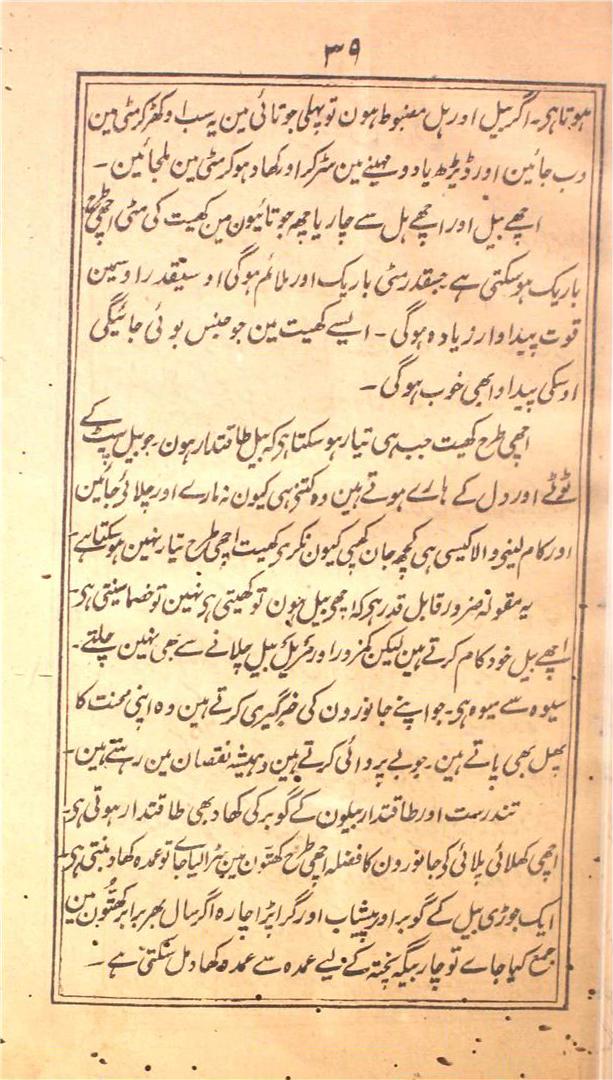 ۳۹
ہوتا ہی۔ اگر بیل اور ہل مضبوط ہون تو پہلی جوتائی مین یہ سب اوکھڑ کر مٹی مین
دب جائین اور ڈیڑھ یا دو مہینے مین سڑ کر اور کھاد ہو کر مٹی مین ملجائین ۔
اچھے بیل اور اچھے ہل سے چار یا چھ جوتائیون مین کھیت کی مٹی اچھی طرح
باریک ہو سکتی ہے جسقدر مٹی باریک اور ملائم ہوگی اوسیقدر اوسمین
قوت پیداوار زیادہ ہوگی ۔ ایسے کھیت مین جو جنس بوئی جائیگی
اوسکی پیداوا بھی خوب ہوگی ۔
اچھی طرح کھیت جب ہی تیار ہو سکتا ہی کہ بیل طاقتدار ہون ۔ جو بیل پیٹ کے
ٹوٹے اور دل کے ہارے ہوتے ہین وہ کتنی ہی کیون نہ مارے اور چلائے جائین
اور کام لینی والا کیسی ہی کچھ جان کھپی کیون نکری کھیت اچھی طرح تیار نہین ہو سکتا ہے
یہ مقولہ ضرور قابل قدر ہی کہ اچھی بیل ہون تو کھیتی ہی نہین تو خصما سیتی ہی۔
اچھے بیل خود کام کرتے ہین لیکن کمزور اور مریل بیل چلانے سے بھی نہین چلتے ۔
سیوہ سے میوہ ہی۔ جو اپنے جانورون کی خبرگیری کرتے ہین وہ اپنی محنت کا
پھل بھی پاتے ہین ۔ جو بے پروائی کرتے ہین وہ ہمیشہ نقصان مین رہتے ہین ۔
تندرست اور طاقتدار بیلون کے گوبر کی کھاد بھی طاقتدار ہوتی ہی۔
اچھی کھلائی پلائی کی جانورون کا فضلہ اچھی طرح کھتون مین سڑا لیا جاے تو عمدہ کھاد بنتی ہی۔
ایک جوڑی بیل کے گوبر اور پیشاب اور گرا پڑا چارہ اگر سال بھر برابر کھتُّون مین
جمع کیا جاے تو چار بیگہ پختہ کے لیے عمدہ سے عمدہ کھاد مل سکتی ہے ۔